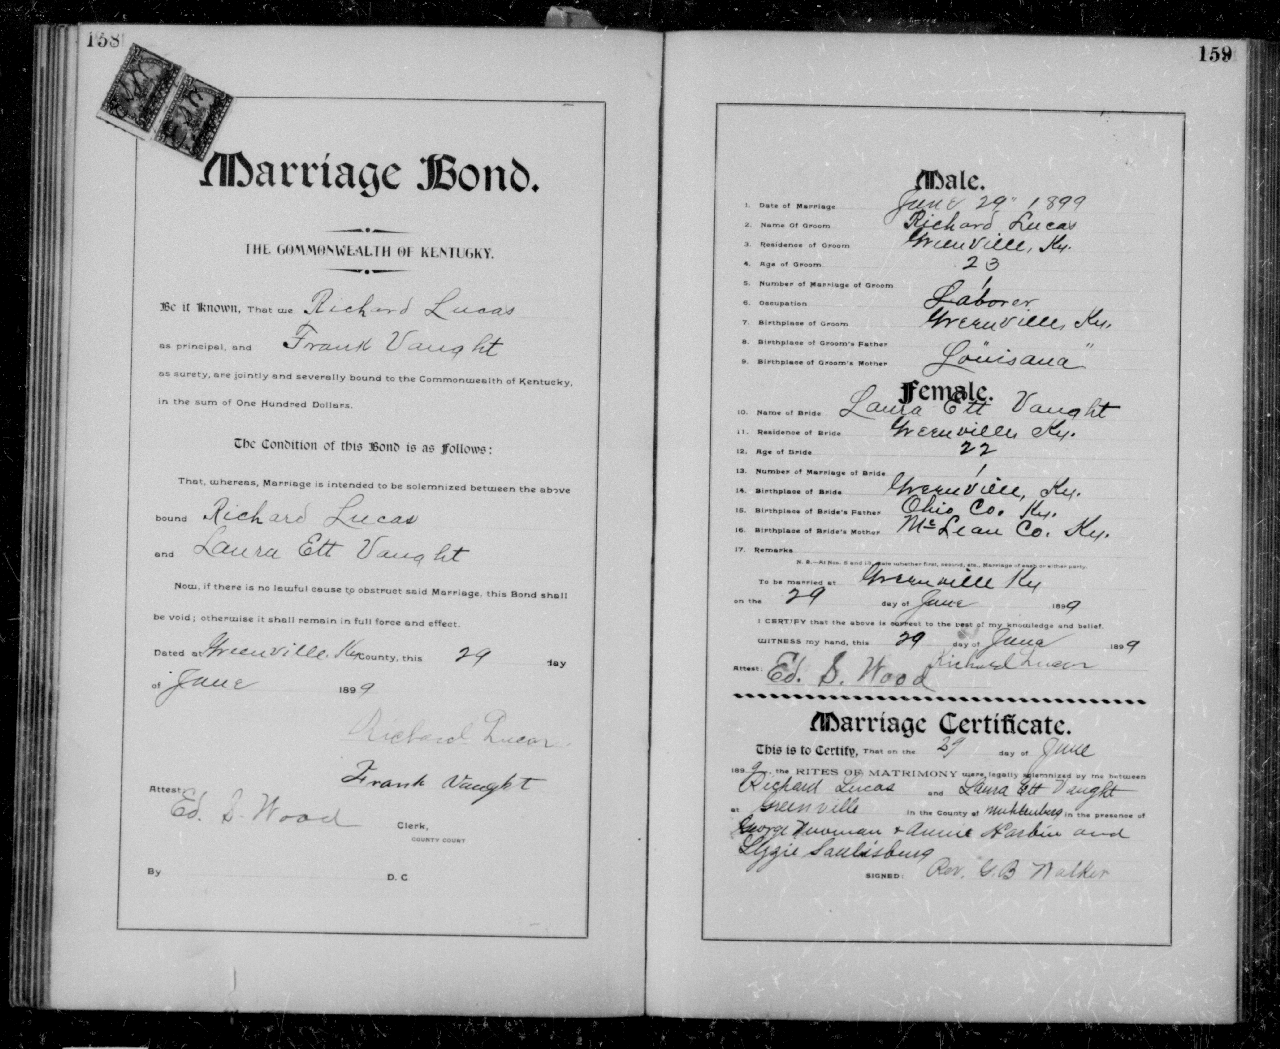 158
Marriage Bond.
THE COMMONWEALTH OF KENTUCKY.
Be it Known, That we Richard Lucas
as principal, and Frank Vaught
as surety, are jointly and severally bound to the Commonwealth of Kentucky,
in the sum of One Hundred Dollars.
The Condition of this Bond is as Follows:
That, whereas, Marriage is intended to be solemnized between the above
bound Richard Lucas
and Laura Ett Vaught
Now, if there is no lawful cause to obstruct said Marriage, this Bond shall
be void; otherwise it shall remain in full force and effect.
Dated at Greenville, Ky County, this 29 day
of June 1899
Richard Lucas
Frank Vaught
Attest:
Ed. S. Wood Clerk,
COUNTY COURT
By D. C
159
Male.
1. Date of Marriage June 29" 1899
2. Name Of Groom Richard Lucas
3. Residence of Groom Greenville, Ky.
4. Age of Groom 23
5. Number of Marriage of Groom 1
6. Occupation Laborer
7. Birthplace of Groom Greenville, Ky.
8. Birthplace of Groom's Father
9. Birthplace of Groom's Mother "Louisana"
Female.
10. Name of Bride Laura Ett Vaught
11. Residence of Bride Greenville Ky.
12. Age of Bride 22
13. Number of Marriage of Bride 1
14. Birthplace of Bride Greenville, Ky.
15. Birthplace of Bride's Father Ohio Co. Ky.
16. Birthplace of Bride's Mother McLean Co. Ky.
17. Remarks
N. B.—At Nos. 5 and 13, state whether first, second, etc., Marriage of each or either party.
To be married at Greenville Ky
on the 29 day of June 1899
I CERTIFY that the above is correct to the best of my knowledge and belief.
WITNESS my hand, this 29 day of June 1899
Richard Lucas
Attest: Ed. S. Wood
Marriage Certificate.
This is to Certify, That on the 29 day of June
1899, the RITES OF MATRIMONY were legally solemnized by me between
Richard Lucas and Laura Ett Vaught
at Greenville in the County of Muhlenberg in the presence of
George Newman + Annie Harbin and
Lizzie Saulsburg
SIGNED: Rev. G. B Walker